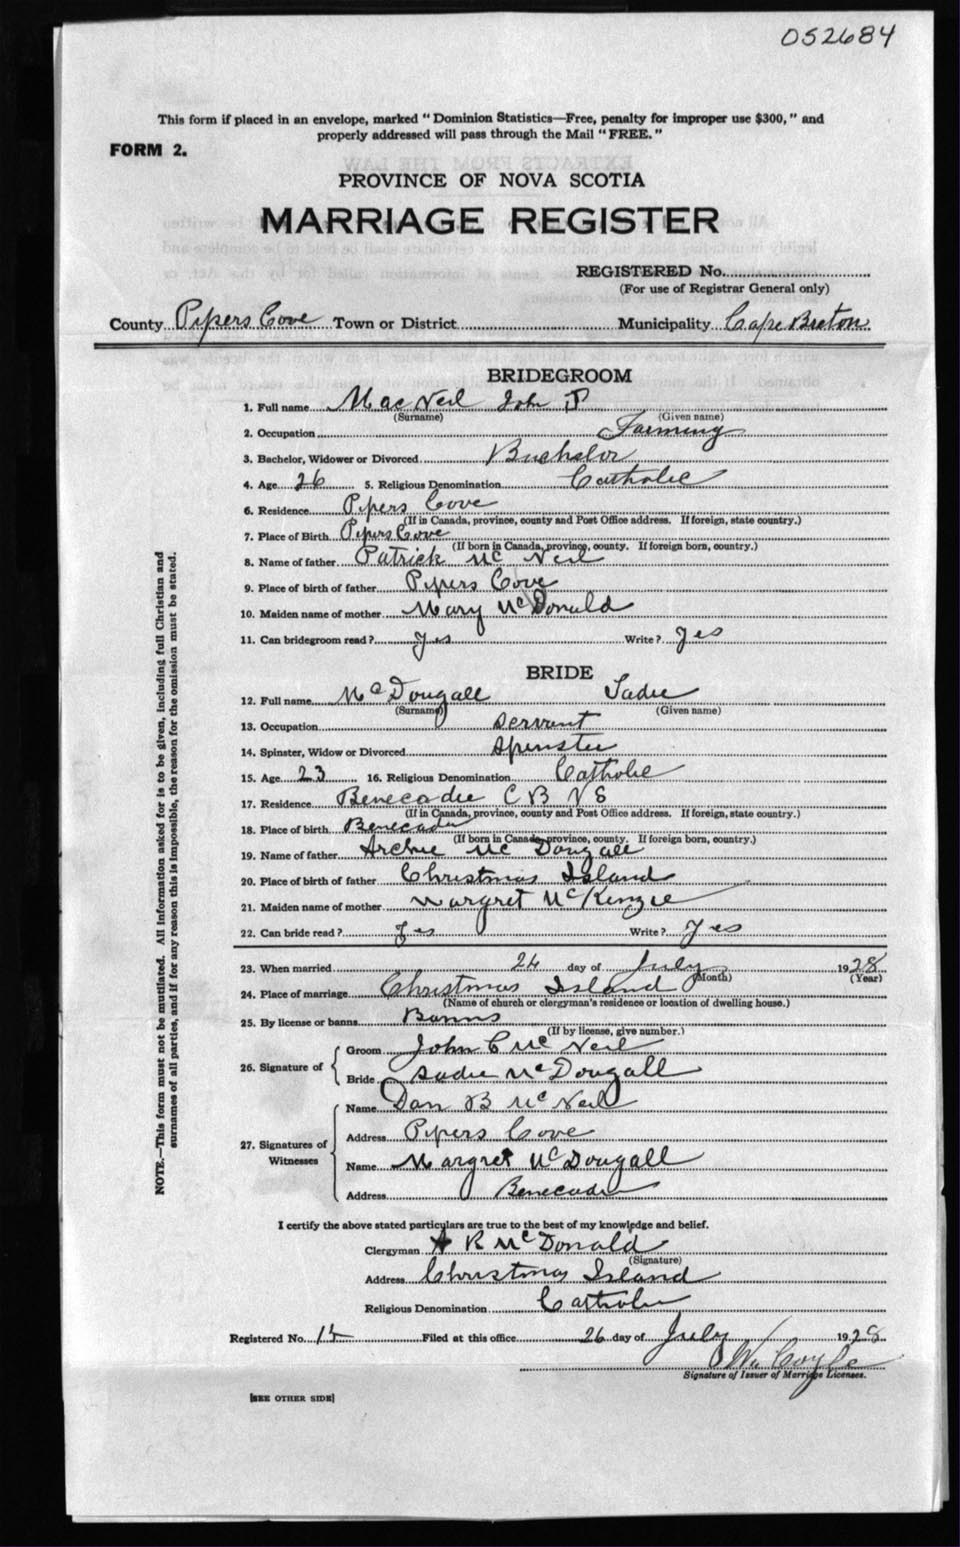 052684
This form if placed in an envelope, marked "Dominion Statistics—Free, penalty for improper use $300," and
properly addressed will pass through the Mail "FREE."
FORM 2.
PROVINCE OF NOVA SCOTIA
MARRIAGE REGISTER
REGISTERED No.
(For use of Registrar General only)
County Pipers Cove Town or District Municipality Cape Breton
BRIDEGROOM
1. Full name MacNeil John P
(Surname) (Given name)
2. Occupation Farming
3. Bachelor, Widower or Divorced Bachelor
4. Age 26 5. Religious Denomination Catholic
6. Residence Pipers Cove
(If in Canada, province, county and Post Office address. If foreign, state country.)
7. Place of Birth Pipers Cove
(If born in Canada, province, county. If foreign born, country.)
8. Name of father Patrick Mc Neil
9. Place of birth of father Pipers Cove
10. Maiden name of mother Mary McDonald
11. Can bridegroom read? Yes Write? Yes
BRIDE
12. Full name McDougall Sadie
(Surname) (Given name)
13. Occupation servant
14. Spinster, Widow or Divorced Spinster
15. Age 23 16. Religious Denomination Catholic
17. Residence Benecadie C B N S
(If in Canada, province, county and Post Office address. If foreign, state country.)
18. Place of birth Benecadie
(If born in Canada, province, county. If foreign born, country.)
19. Name of father Archie Mc Dougall
20. Place of birth of father Christmas Island
21. Maiden name of mother Margret McKenzie
22. Can bride read? Yes Write? Yes
23. When married 24 day of July 1928
(Month) (Year)
24. Place of marriage Christmas Island
(Name of church or clergyman's residence or location of dwelling house.)
25. By license or banns Banns
(If by license, give number.)
26. Signature of
Groom John C McNeil
Bride Sadie McDougall
27. Signatures of Witnesses
Name Dan B McNeil
Address Pipers Cove
Name Margret McDougall
Address Benecadie
I certify the above stated particulars are true to the best of my knowledge and belief.
Clergyman A R McDonald
(Signature)
Address Christmas Island
Religious Denomination Catholic
Registered No. 15 Filed at this office 26 day of July 1928
Coyle
Signature of Issuer of Marriage Licenses.
[SEE OTHER SIDE]
NOTE.—This form must not be mutilated. All information asked for is to be given, including full Christian and
surnames of all parties, and if for any reason this is impossible, the reason for the omission must be stated.